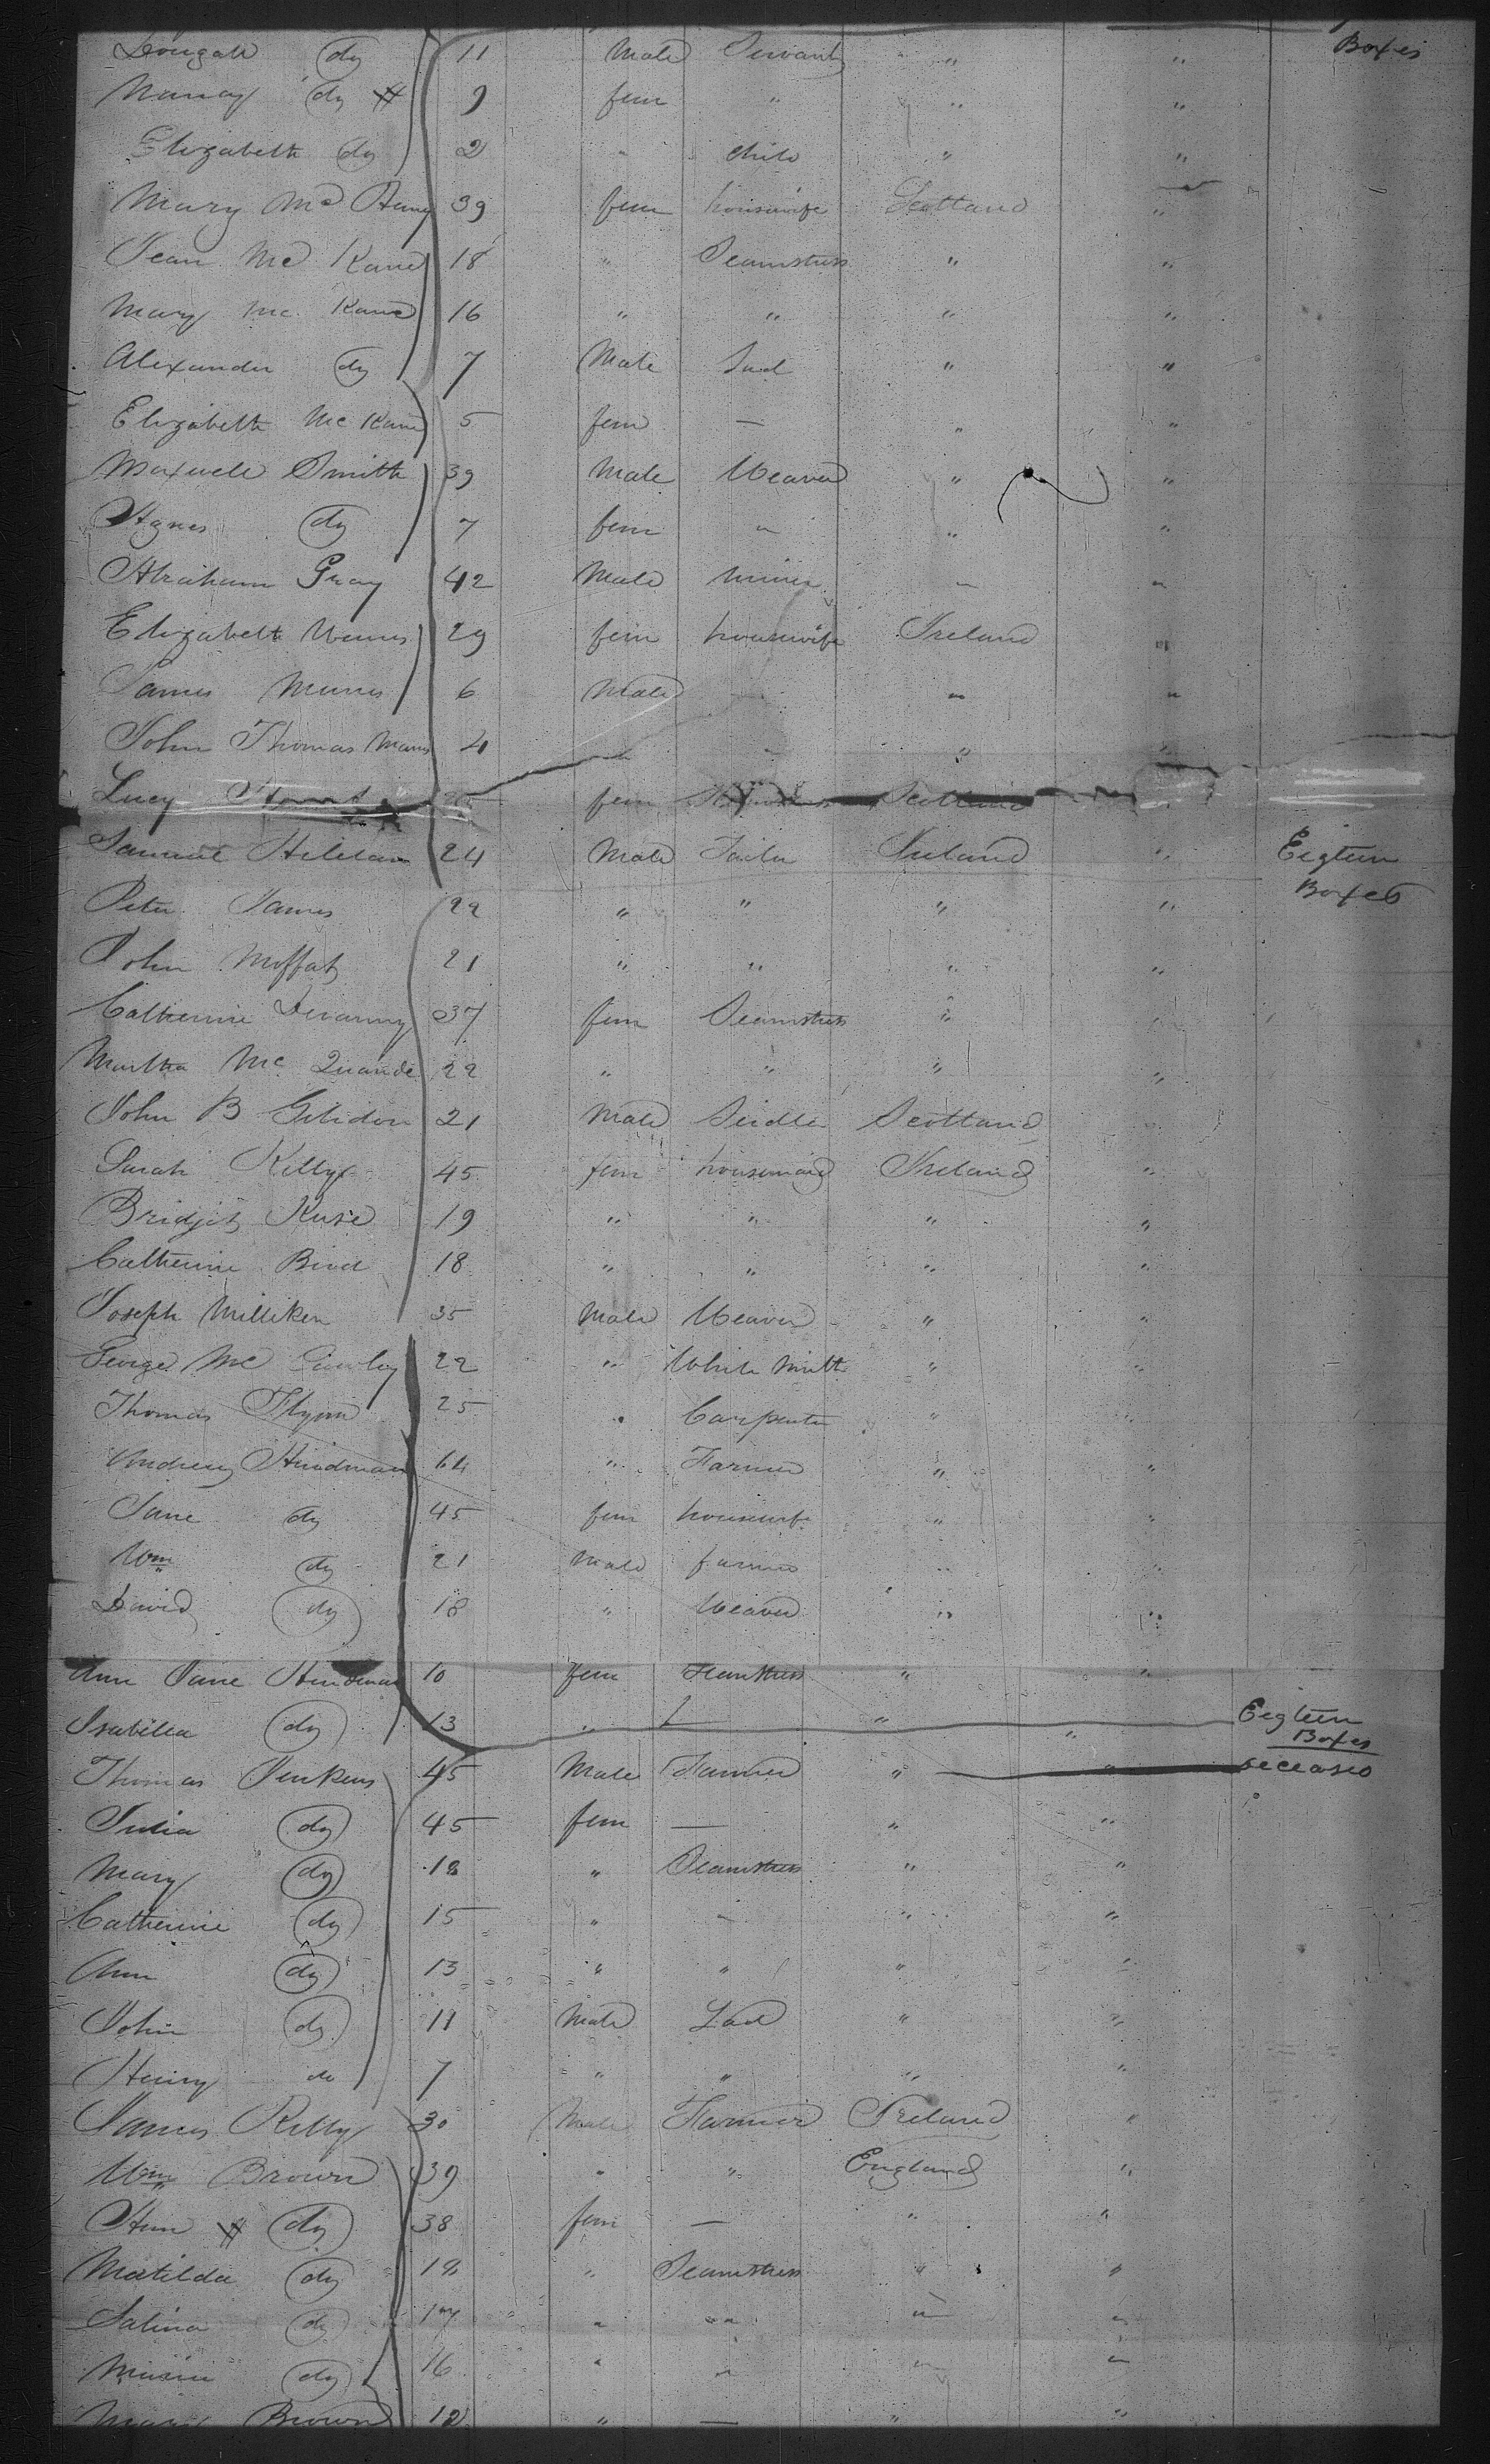 Dougall do 11 Male Servant " " Boxes
Nancy do 9 fem " " "
Elizabeth do 2 " child " "
Mary Mc 39 fem housewife Scotland "
Jean Mc Kane 18 " Seamstress " "
Mary Mc Kane 16 " " " "
Alexander do 7 Male Lad " "
Elizabeth Mc Kane 5 fem — " "
Maxwell Smith 39 Male Weaver " "
Agnes do 7 fem " " "
Abraham Gray 42 Male miner " "
Elizabeth 29 fem housewife Ireland "
James 6 Male " "
John Thomas 4 " " " "
Lucy fem Scotland
Samuel 24 Male Tailor Ireland " Eigteen
Boxes
Peter James 22 " " " "
John Moffat 21 " " " "
Catherine Devanny 37 fem Seamstress " "
Martha Mc 22 " " " "
John B 21 Male Scotland
Sarah Kelly 45 fem housemaid Ireland "
Bridget 19 " " " "
Catherine 18 " " " "
Joseph Milliken 35 Male Weaver " "
George Mc 22 " White Smith " "
Thomas Flynn 25 " Carpenter " "
Andrew Hindman 64 " Farmer " "
Jane do 45 fem housewife " "
Wm do 21 Male farmer " "
David do 18 " Weaver " "
Ann Jane Hindman 10 fem Seamstress " "
Isabella do 13 " — " " Eigteen
Boxes
Thomas Jenkens 45 Male Farmer " " deceased
Julia do 45 fem — " "
Mary do 18 " Seamstress " "
Catherine do 15 " " " "
Ann do 13 " " " "
John do 11 Male Lad " "
Henry do 7 " " " "
James Kelly 30 Male Farmer Ireland "
Wm Brown 39 " " England "
Ann do 38 fem — " "
Matilda do 18 " Seamstress " "
Salina do 17 " " " "
do 16 " " " "
Mary Brown 12 " — " "